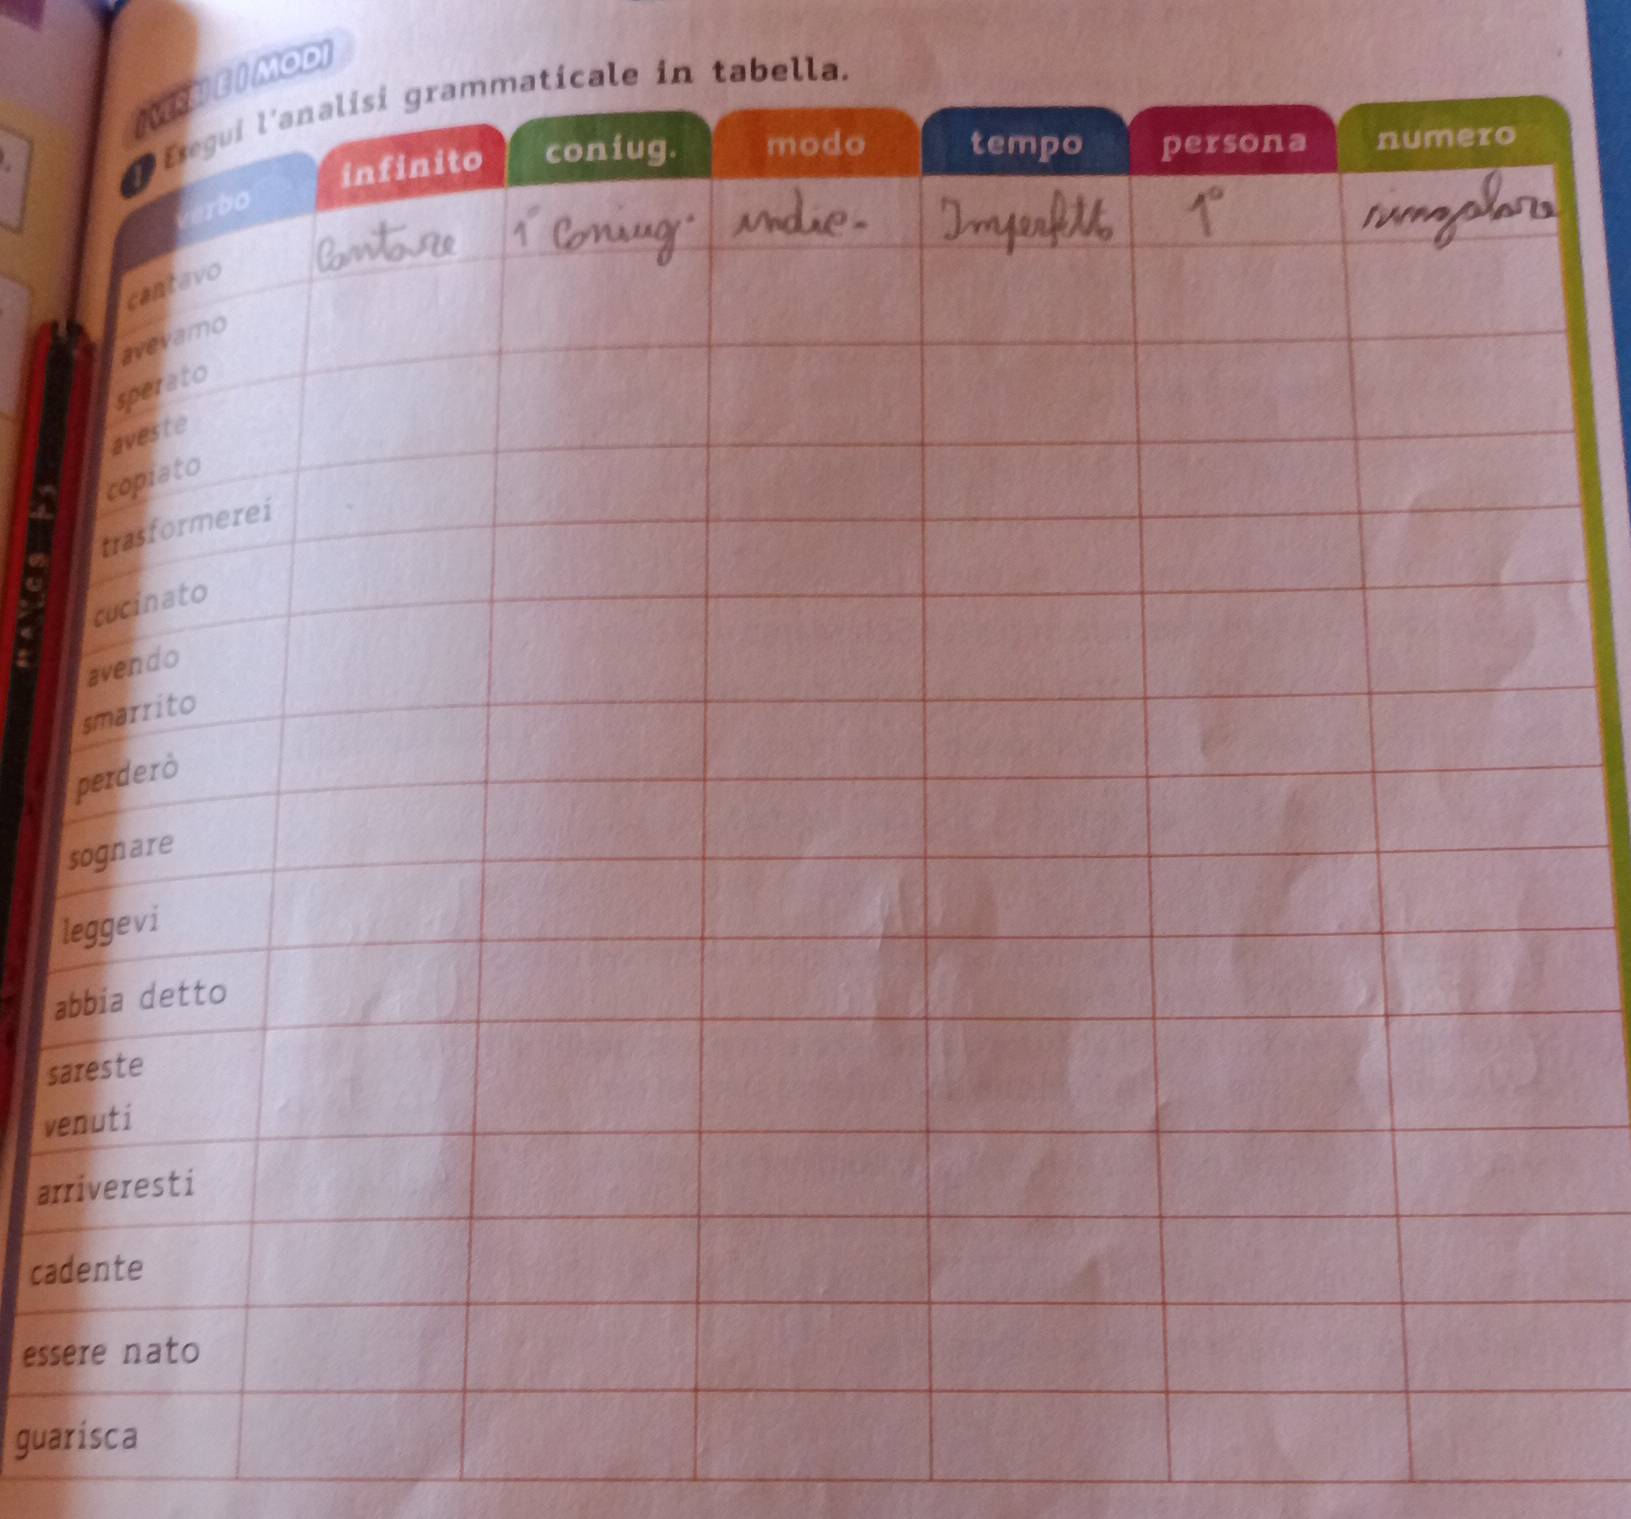 E I MODI
1 Esegui l'analisi grammaticale in tabella.
verbo infinito coniug. modo tempo persona numero
cantavo Cantare 1° Coniug. indic. Imperfetto 1° singolare
avevamo
sperato
aveste
copiato
trasformerei
cucinato
avendo
smarrito
perderò
sognare
leggevi
abbia detto
sareste
venuti
arriveresti
cadente
essere nato
guarisca